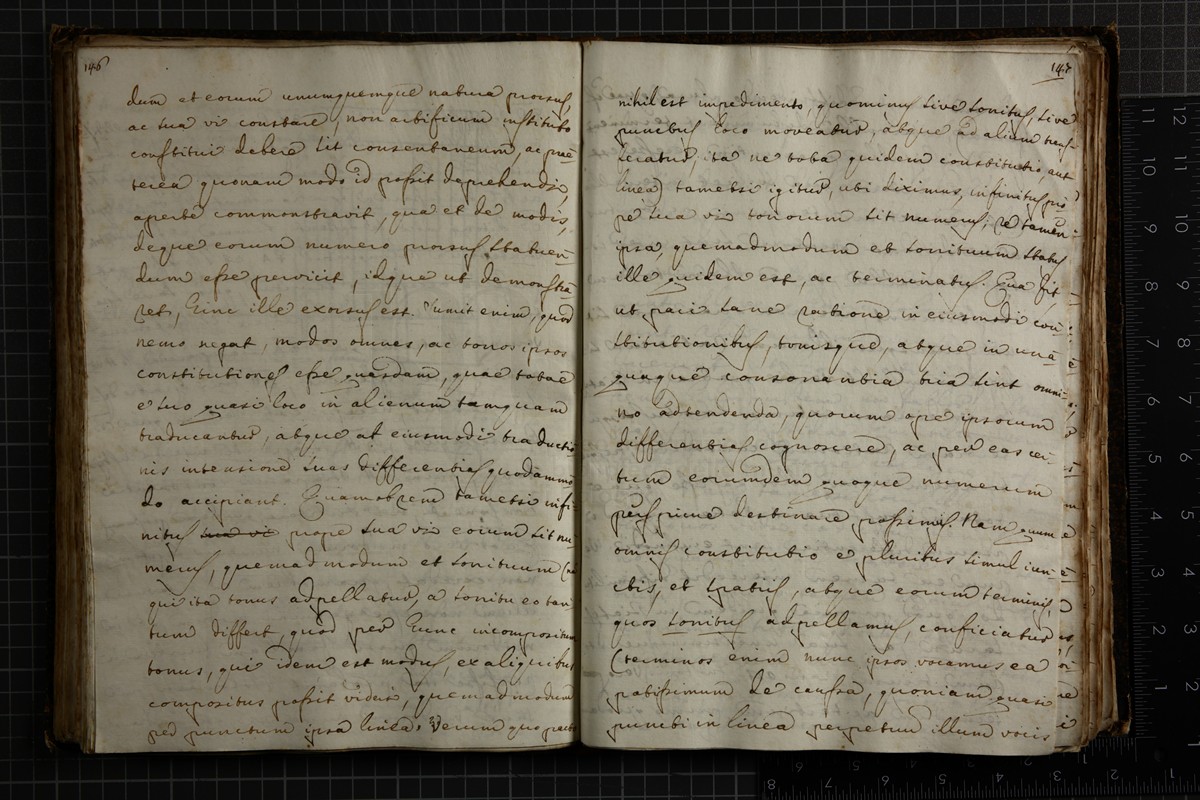 146
dum et eorum unumquemque natura prorsus,
ac sua vi constare, non artificum instituto
constitui debere sit consentaneum, ac præ-
terea quonam modo id possit deprehendi,
aperte commonstravit, qua et de modis,
deque eorum numero prorsus statuen-
dum esse pervicit, idque ut demonstra-
ret, hinc ille exorsus est. Sumit enim, quod
nemo negat, modos omnes, ac tonos ipsos
constitutiones esse quasdam, quae totae
e suo quasi loco in alienum tamquam
traducantur, atque at eiusmodi traductio
nis intensione suas differentias quodammo
do accipiant. Quamobrem tametsi infi-
nitus sua vi prope sua vi eorum sit nu-
merus, quemadmodum et sonituum (
qui ita tonus adpellatur, a sonitu eo tan
tum differt, quod per hunc incompositum
tonus, qui idem est modus, ex aliquibus
compositus possit videri, quemadmodum
per punctum ipsa linea) Verum quo pacto
147
nihil est impedimento, quominus sive sonitus, sive
punctus loco moveatur, atque ad alium trans-
feratur, ita ne tota quidem constitutio, aut
linea) tametsi igitur, uti diximus, infinitus pro
pe sua vi tonorum sit numerus, re tamen
ipsa, quemadmodum et sonituum status
ille quidem est, ac terminatus. Qua fit
ut pari sane ratione in eiusmodi con-
stitutionibus, tonisque, atque in una
quaque consonantia tria sint omni-
no adtendenda, quorum ope ipsorum
differentias cognoscere, ac per eas cer-
tum eorumdem quoque numerum
perspicue destinare possimus. Nam quum
omnis constitutio e pluribus simul iun-
ctis, et spatiis, atque eorum terminis
quos sonitus adpellamus, conficiatur
(terminos enim nunc ipsos vocamus ea
potissimum de caussa, quoniam quasi
puncti in linea perpetuum illum vocis